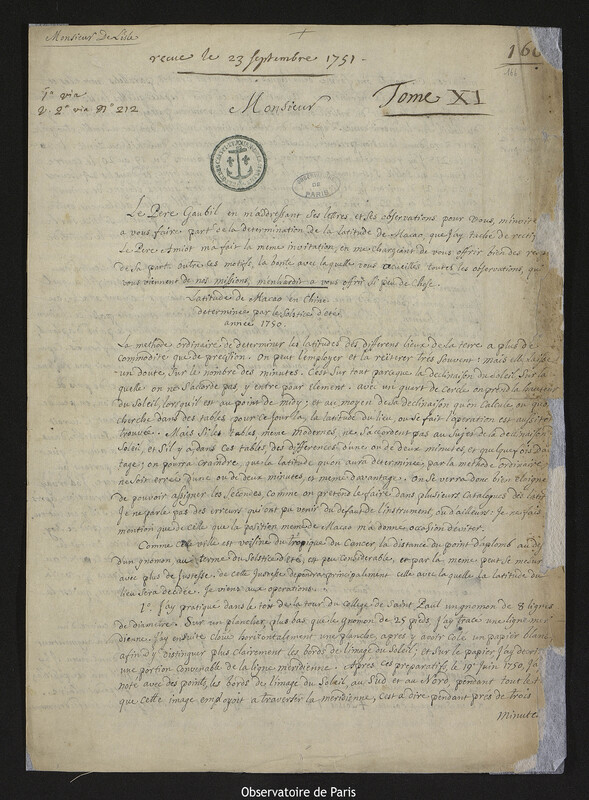 Monsieur De Lisle
recue le 23 Septembre 1751.
160
166
1ª via
v. 2ª via Nº 212
Monsieur
Tome XI
OBSERVATOIRE DE PARIS
Le Pere Gaubil en m'addressant ses lettres, et ses observations pour vous, m'invite
a vous faire part de la determination de la latitude de Macao, que j'ay taché de rectif
Le Pere Amiot m'a fait la meme invitation, en me chargeant de vous offrir bien des resp
de sa part. outre ces motifs, la bonté avec laquelle vous accueilles toutes les observations, qui
vous viennent de nos missions, m'enhardit a vous offrir si peu de chose.
Latitude de Macao en Chine
determinée par le Solstice d'eté
année 1750.
La methode ordinaire de determiner les latitudes des differens lieux de la terre a plus de
commodité que de precision. On peut l'employer et la reiterer tres souvent: mais elle laisse
un doute, sur le nombre des minutes. C'est sur tout parceque la declinaison du soleil, sur la
quelle on ne s'accorde pas, y entre pour element. avec un quart de cercle on prend la hauteur
du Soleil, lorsqu'il est au point de midy; et au moyen de la declinaison qu'on calcule ou qu'on
cherche dans des tables pour ce jour la, la latitude du lieu, ou se fait l'operation est aussitot
trouvée. Mais si les tables, meme modernes, ne s'accordent pas au sujet de la declinaison
Soleil, et s'il y a dans ces tables des differences d'une ou de deux minutes, et quelquefois dav
tage; on pourra craindre, que la latitude qu'on aura determinée par la methode ordinaire,
ne soit erronée d'une ou de deux minutes, et meme davantage. On se verra donc bien eloigné
de pouvoir assigner les secondes, comme on pretend le faire dans plusieurs Catalogues des latit
Je ne parle pas des erreurs, qui ont pu venir du defaut de l'instrument, ou d'ailleurs: Je ne fais
mention que de celle que la position meme de Macao m'a donné occasion d'eviter.
Comme cette ville est voisine du tropique du Cancer, la distance du point d'aplomb au des
d'un gnomon au terme du Solstice d'eté, est peu considerable, et par la meme peut se mesurer
avec plus de justesse. de cette justesse dependra principalement celle avec la quelle la latitude du
lieu sera decidée. Je viens aux operations.
1º. J'ay pratiqué dans le toit de la tour du college de Saint Paul un gnomon de 8 lignes
de diametre. Sur un plancher, plus bas que le gnomon de 25 pieds, j'ay tracé une ligne me
dienne. J'ay ensuite cloué horizontalement une planche, apres y avoir colé un papier blanc
afin d'y distinguer plus clairement les bords de l'image du Soleil; et sur le papier j'ay decrit
une portion convenable de la ligne meridienne. Apres ces preparatifs, le 19e Juin 1750, j'a
noté avec des points, les bords de l'image du Soleil, au Sud et au Nord, pendant tout le t
que cette image employoit a traverser la meridienne, c'est a dire pendant pres de trois
minutes
Observatoire de Paris